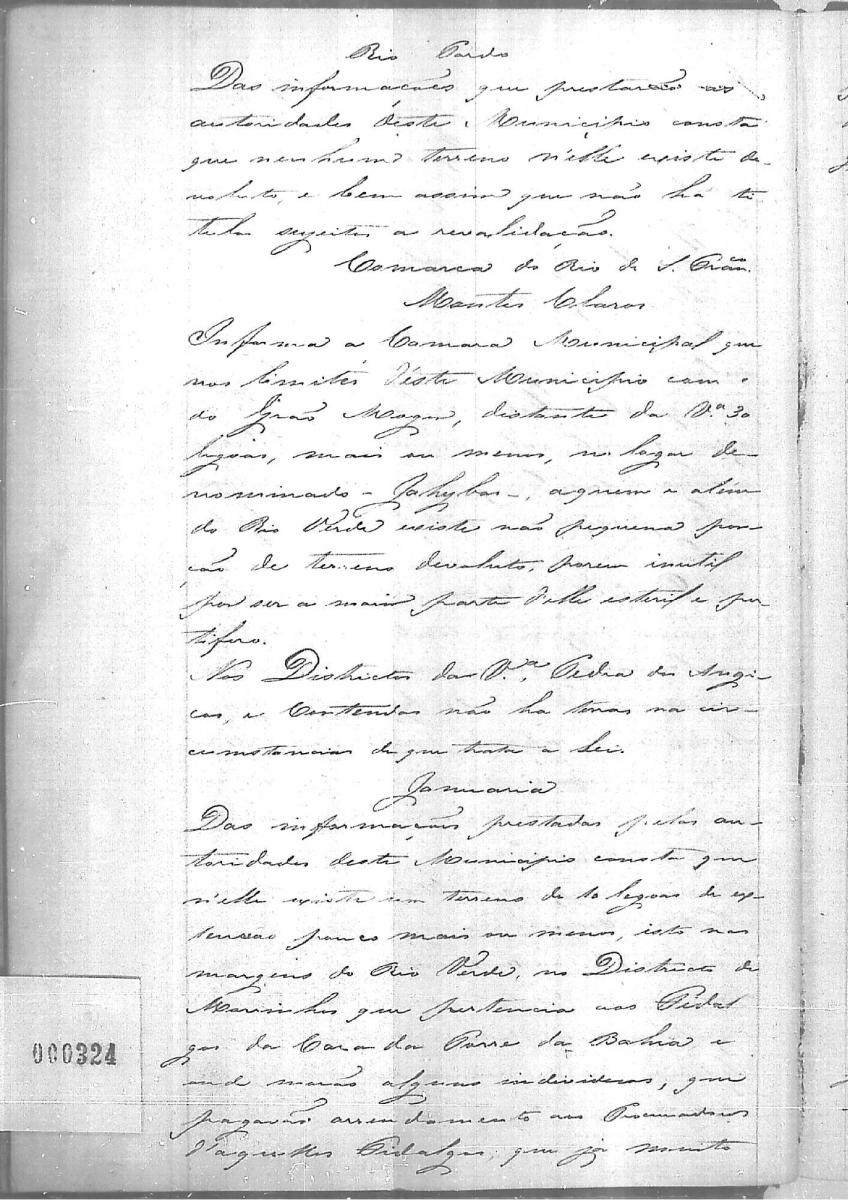 Rio Pardo
Das informações que prestarão as
autoridades deste Municipio consta
que nenhum terreno n'elle existe de-
voluto, e bem assim que não há ti
tulos sugeitos a revalidação.
Comarca do Rio de S. Fran.co
Montes Claros
Informa a Camara Municipal que
nos limites d'este Municipio com o
do Grão Mogor, distante da V.a 30
legoas, mais ou menos, no lugar de-
nominado - Jahybas -, aquem e alem
do Rio Verde existe não pequena por-
ção de terreno devoluto, porem inutil
por ser a maior parte d'elle esteril e pes-
tifero.
Nos Districtos da V.a, Pedra dos Angi-
cos, e Contendas não ha terras na cir-
cumstancias de que trata a Lei.
Januaria
Das informações prestadas pelas au-
toridades deste Municipio consta que
n'elle existe um terreno de 10 legoas de ex-
tensão pouco mais ou menos, isto nas
margens do Rio Verde, no Districto de
Morrinhos que pertencia aos Fidal
gos da Casa da Torre da Bahia e
onde morão alguns individuos, que
pagavão arrendamento aos Procuradores
d'aquelles Fidalgos, que ja muito
000324